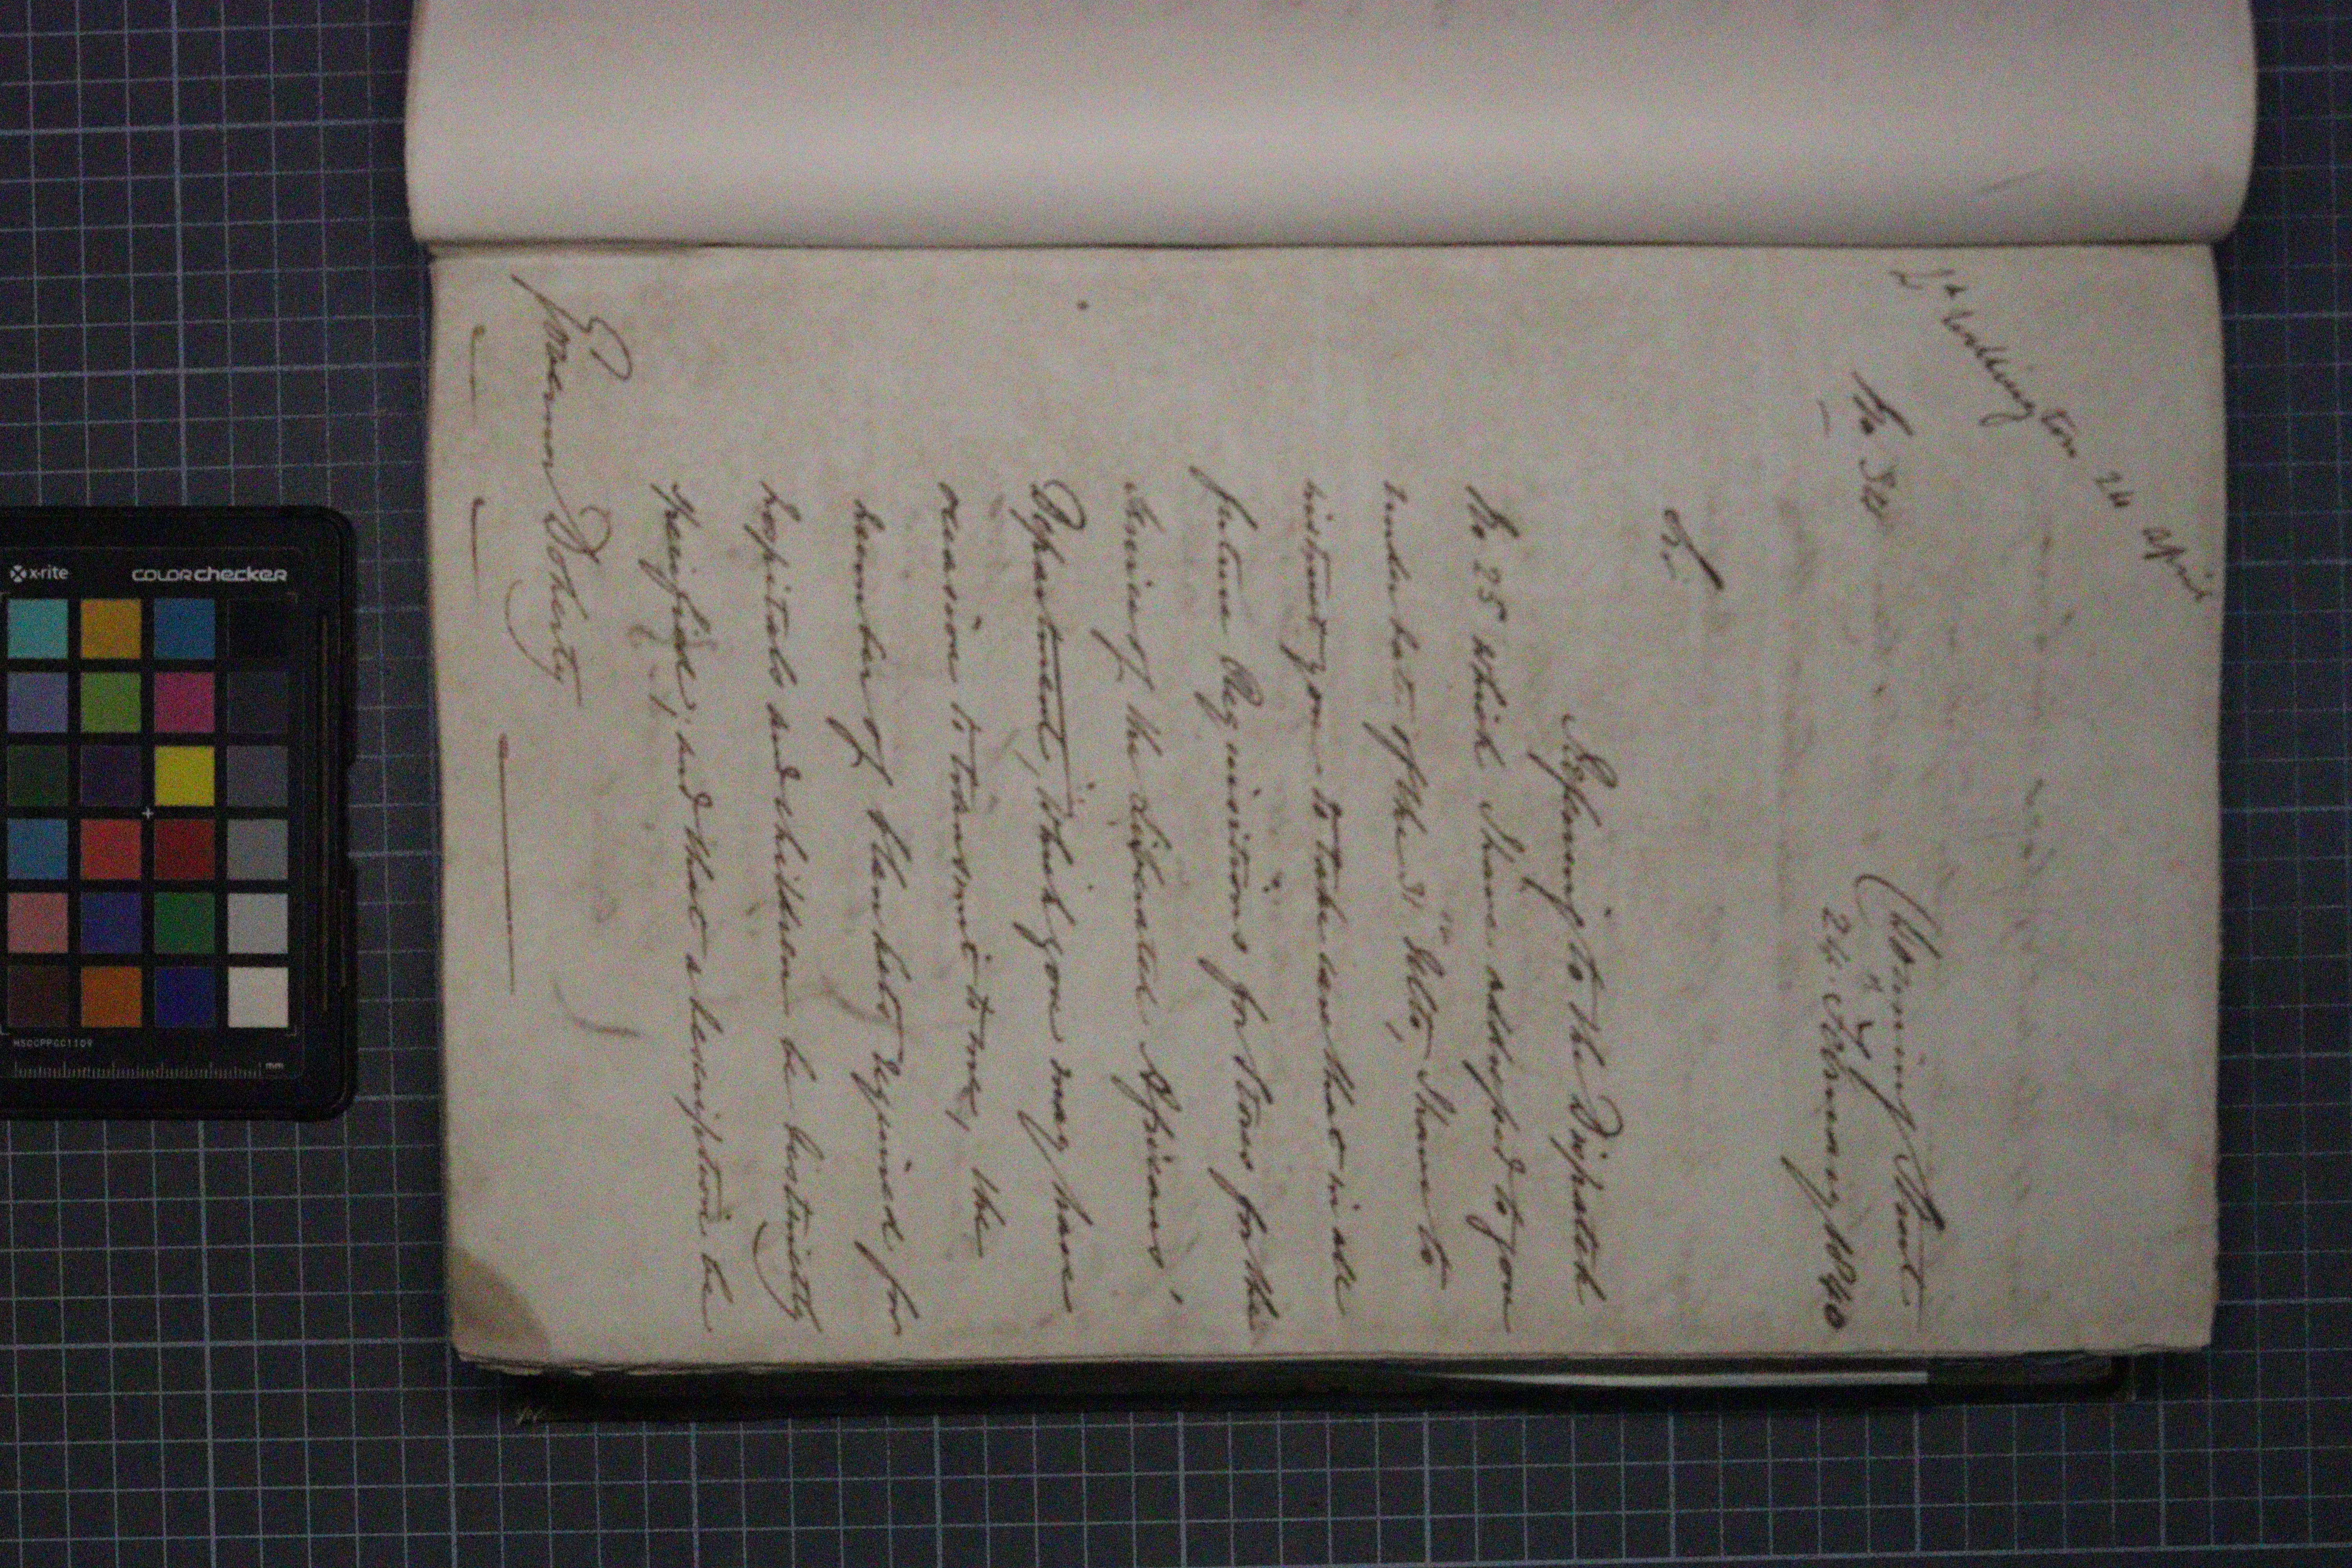 Wellington 24 April
No 34
Downing Street
24 February 1840
Sir,
Referring to the Dispatch
No 25 which I have addressed to you
under date of the 31st Ulto, I have to
instruct you to take care that in all
future Requisitions for Stores for the
Service of the Liberated Africans'
Department, which you may have
occasion to transmit to me, the
number of blankets required for
hospitals and children be distinctly
specified; and that a description be
Governor Doherty
x-rite COLORchecker
MSCCPPCC1109
mm